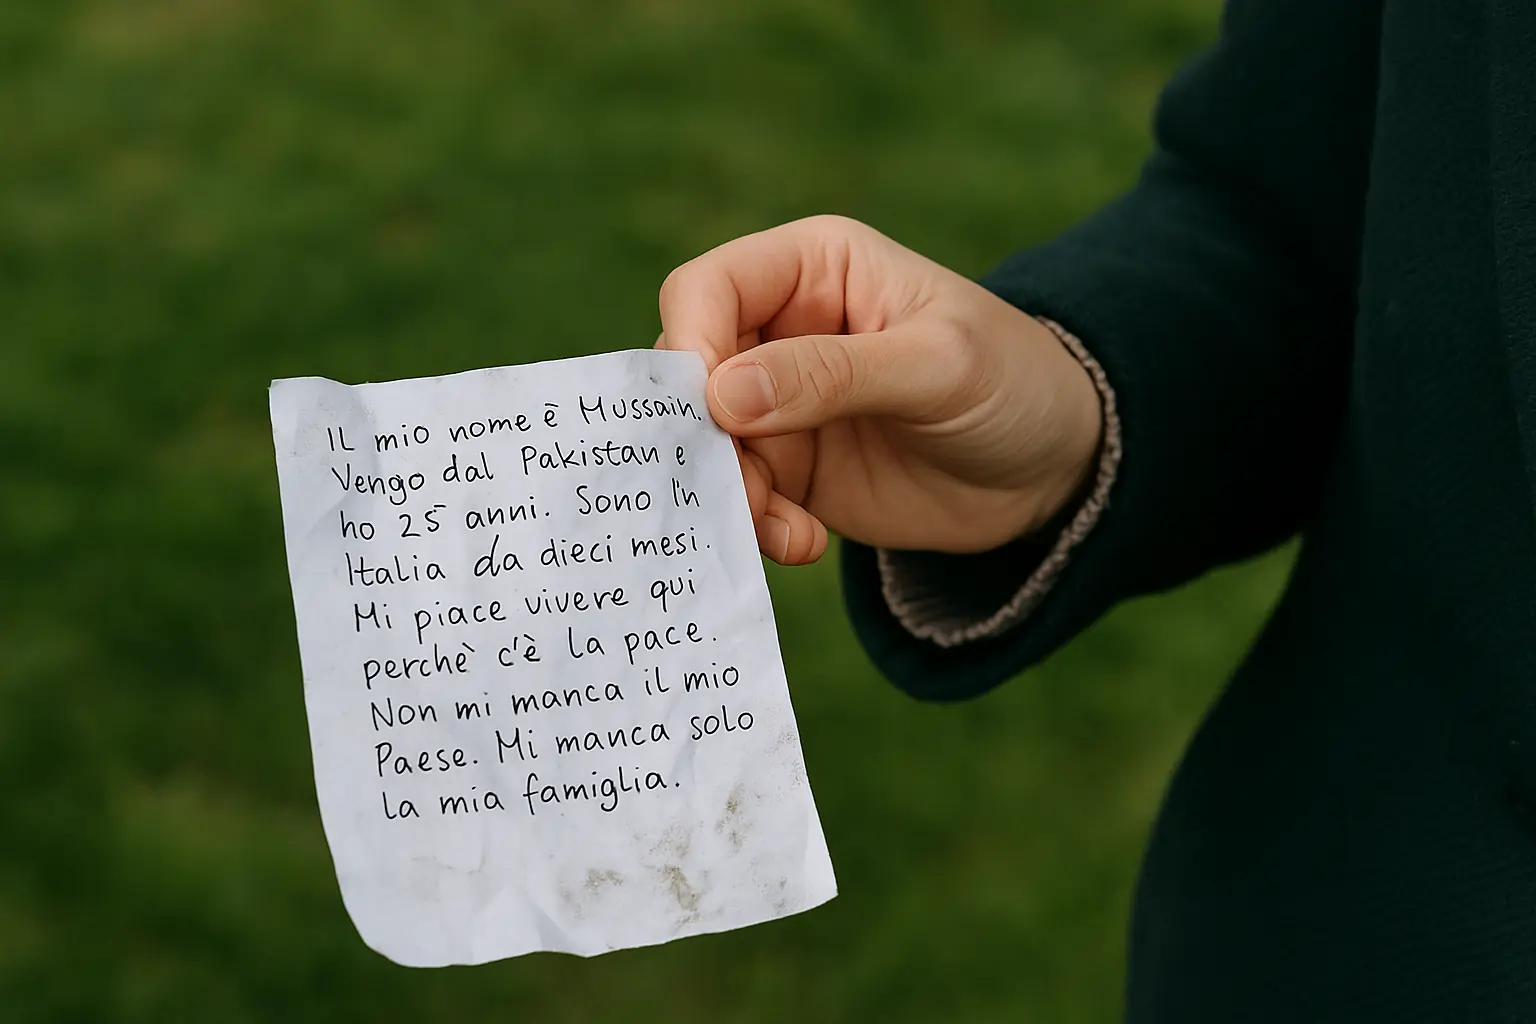 IL mio nome è Mussain.
Vengo dal Pakistan e
ho 25 anni. Sono In
Italia da dieci mesi.
Mi piace vivere qui
perchè c'è la pace.
Non mi manca il mio
Paese. Mi manca solo
la mia famiglia.